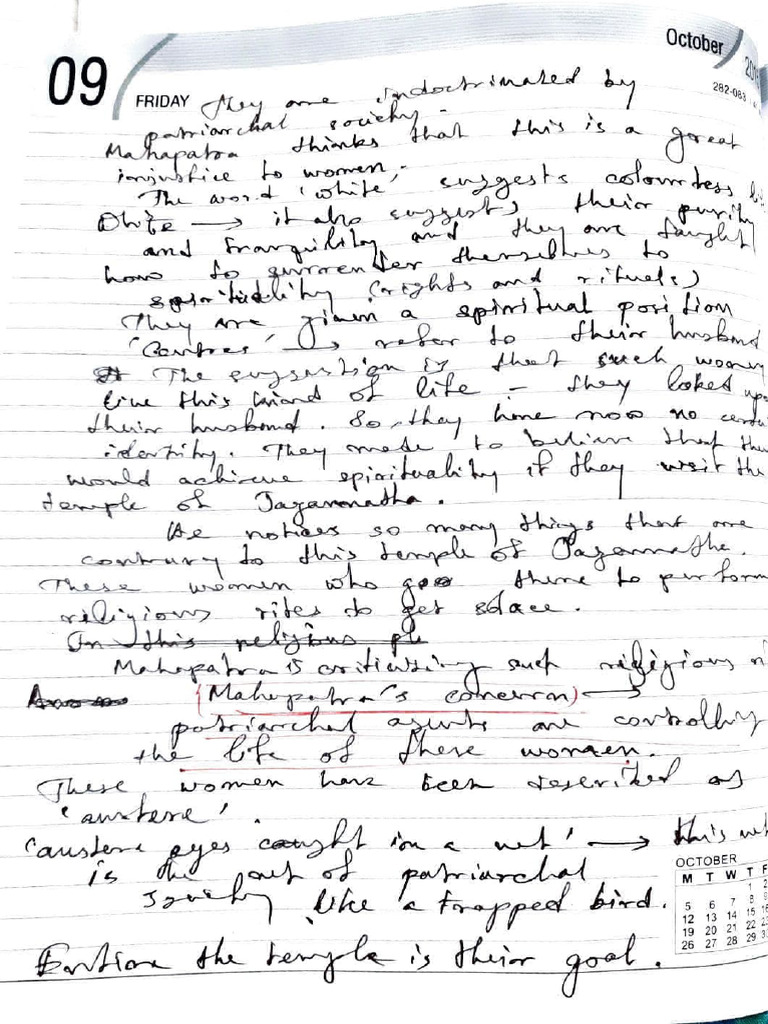 October
09
FRIDAY
282-083
They are indoctrinated by
patriarchal society.
Mahapatra thinks that this is a great
injustice to women,-
The word 'white' suggests colourless
White → it also suggests their purity
and tranquility and they are taught
how to surrender themselves to
spirituality (rights and rituals)
They are given a spiritual position
'Centres' → refer to their husband
The suggestion is that such women
live this kind of life - they looked upon
their husband. So, they have now no
identity. They made to believe that they
would achieve spirituality if they visit the
temple of Jagannatha.
He notices so many things that are
contrary to this temple of Jagannatha.
These women who go there to perform
religious rites to get solace.
In this religious pl
Mahapatra is criticizing such religious
(Mahapatra's concern) →
patriarchal agents are controlling
the life of these women.
These women have been described as
'austere'.
'austere eyes caught in a net' → this net
is the net of patriarchal
society like a trapped bird.
the temple is their goal.
OCTOBER
M T W T F
1 2
5 6 7 8
12 13 14 15
19 20 21 22
26 27 28 29